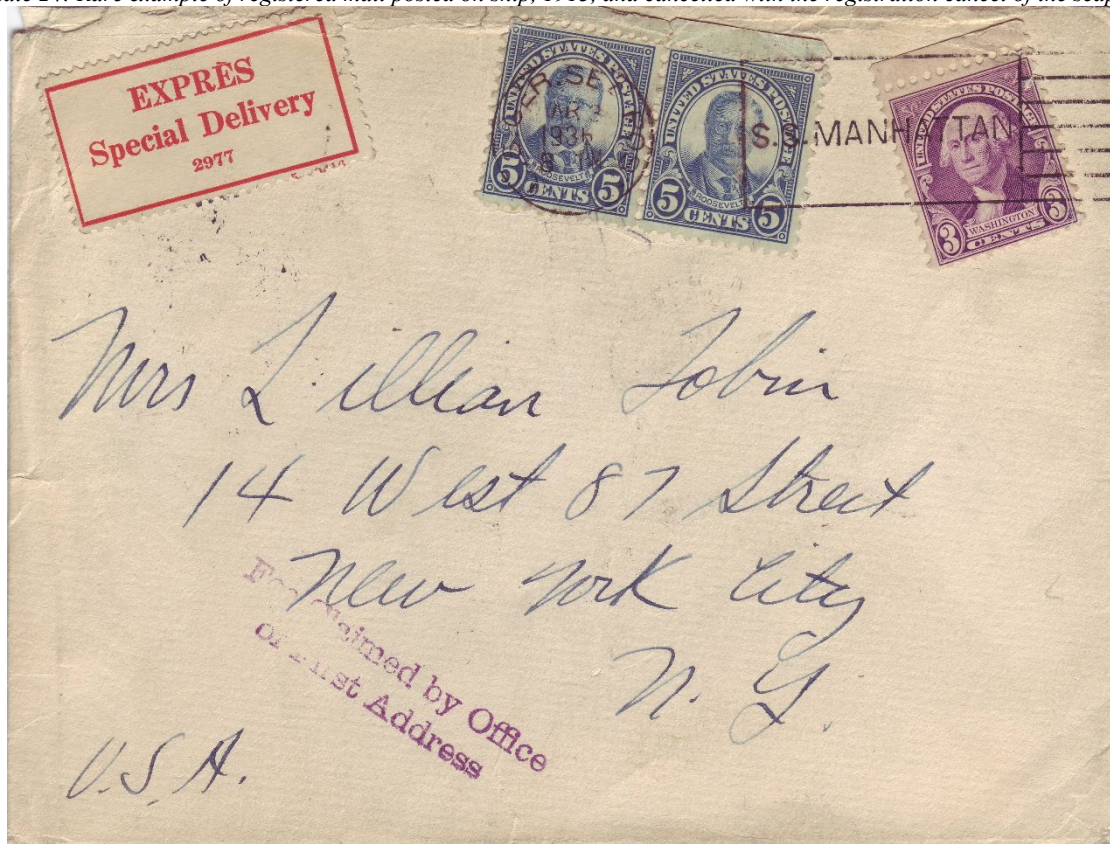 Rare example of registered mail posted on ship, 1913, and cancelled with the registration cancel of the
EXPRÈS
Special Delivery
2977
UNITED STATES POSTAGE
ROOSEVELT
5 CENTS 5
UNITED STATES POSTAGE
ROOSEVELT
5 CENTS 5
1936
S.S. MANHATTAN
UNITED STATES POSTAGE
WASHINGTON
3 CENTS 3
Mrs Lillian Tobin
14 West 87 Street
New York City
N. Y.
U.S.A.
Fee Claimed by Office
of First Address